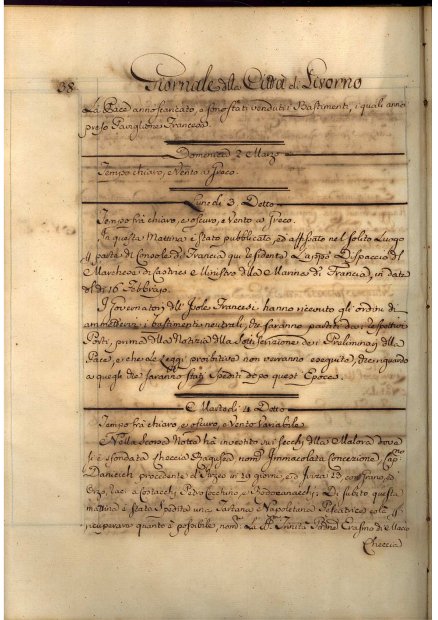 38
Giornale della Città di Livorno
La Pace anno francato, e sono stati venduti i Bastimenti, i quali anno
preso Paviglione Francese.
Domenica 2 Marzo
Tempo chiaro, e Vento a Greco.
Lunedì 3 Detto
Tempo frà chiaro, e oscuro, e Vento a Greco.
In questa Mattina è stato pubblicato, ed affissato nel solito Luogo
parte di Console di Francia qui residente Dispaccio del
Marchese di Castries e Ministro della Marina di Francia, in data
del dì 16 Febbraro.
I Governatori dell'Isole Francesi hanno ricevuto gli ordini di
i bastimenti neutrali, che saranno partiti da i respettivi
Porti, prima della Notizia della Sottoscrizione dei Preliminari della
Pace, e che le Leggi proibitive non verranno eseguite, che riguardo
a quegli che saranno stati Spediti dopo quest'Epoca.
Martedì 4 Detto
Tempo frà chiaro, e oscuro, e Vento Variabile
Nella scorsa Notte hà investito sui secchi della Malora dove
si è sfondata Checcia Ragusea nom. Immacolata Concezione Cap.no
Danieich procedente d' in 29 giorni, e da 23, con Grano, ed
Orzo, racc. a Costacchi, Pietro Cocchino, e Rodocanacchi; Di subito questa
mattina è stata Spedita una Tartana Napoletana Pescatrice colà
ricuperare quanto è possibile nom. La SS. Trinità Padrone Erasmo di Macio
Checcia